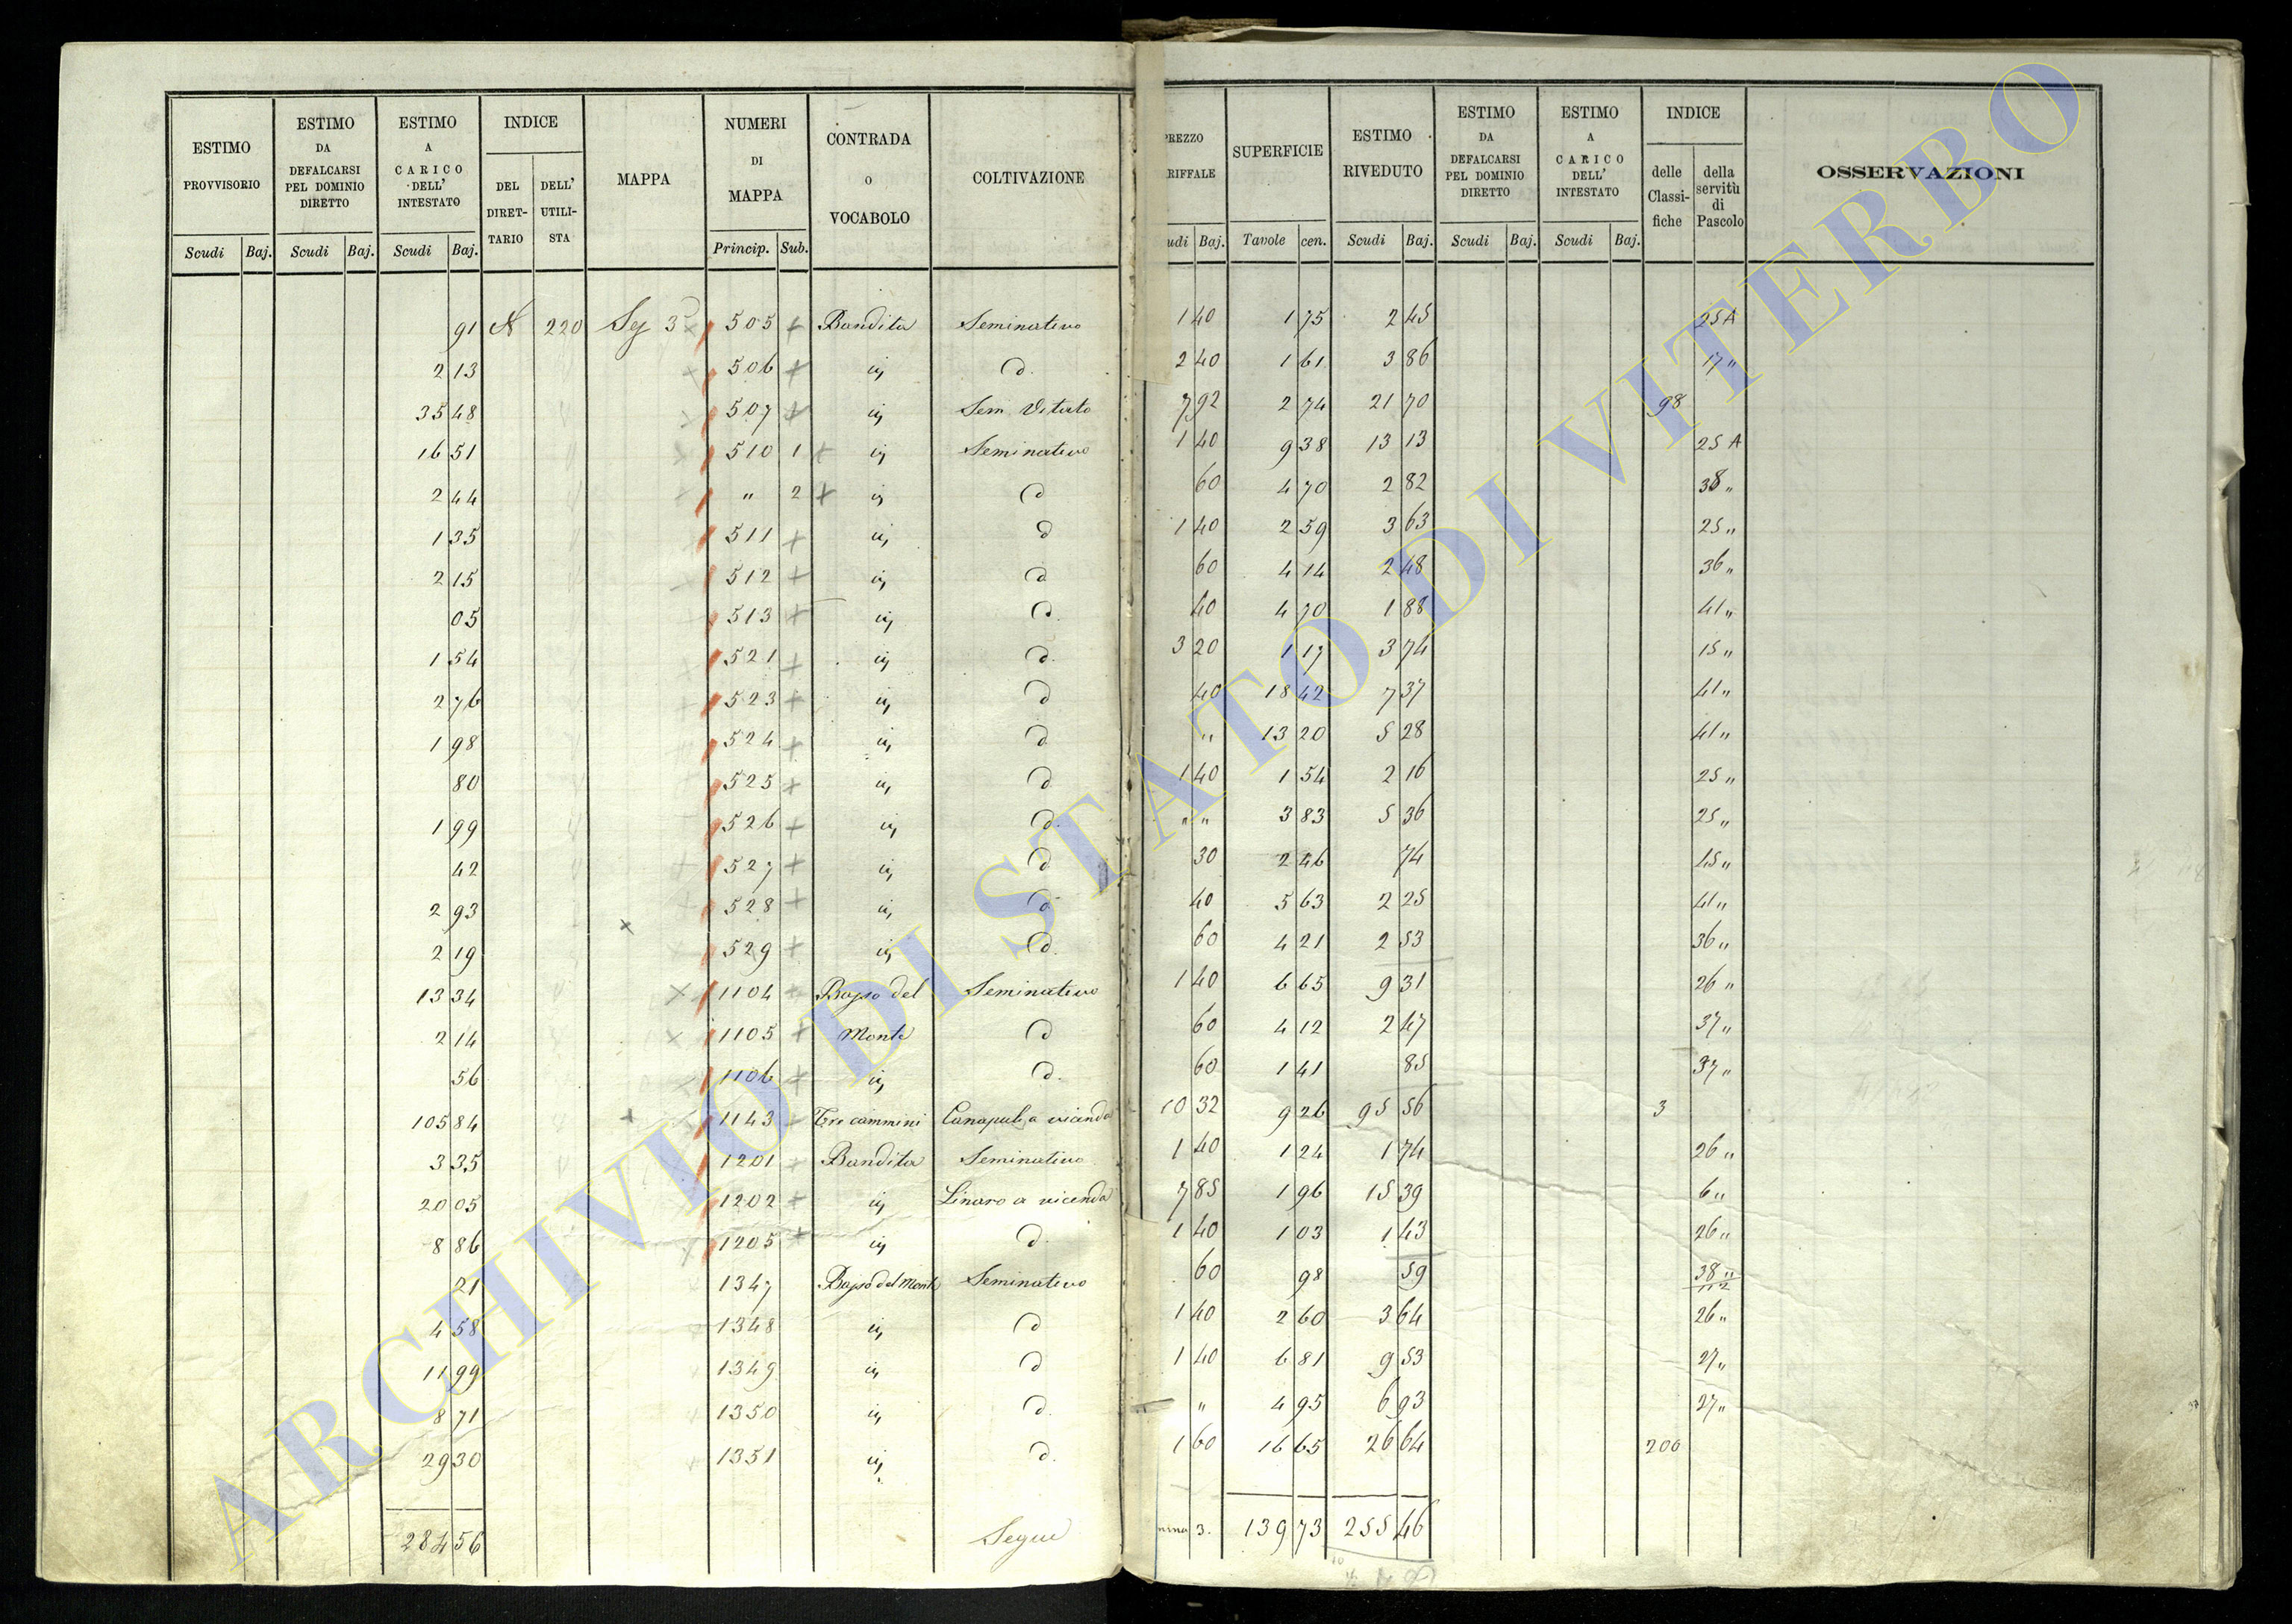 ESTIMO PROVVISORIO Scudi Baj.
ESTIMO DA DEFALCARSI PEL DOMINIO DIRETTO Scudi Baj.
ESTIMO A CARICO DELL' INTESTATO Scudi Baj.
INDICE DEL DIRET-TARIO DELL' UTILI-STA
MAPPA
NUMERI DI MAPPA Princip. Sub.
CONTRADA O VOCABOLO
COLTIVAZIONE
PREZZO RIFFALE udi Baj.
SUPERFICIE Tavole cen.
ESTIMO RIVEDUTO Scudi Baj.
ESTIMO DA DEFALCARSI PEL DOMINIO DIRETTO Scudi Baj.
ESTIMO A CARICO DELL' INTESTATO Scudi Baj.
INDICE delle Classi-fiche della servitù di Pascolo
OSSERVAZIONI
91 N 220 Sez 3a 505 Bandita Seminativo 1 40 1 75 2 45 25 A
2 13 506 iq d. 2 40 1 61 3 86 17 "
35 48 507 iq Sem. Vitato 7 92 2 74 21 70 98
16 51 510 1 iq Seminativo 1 40 9 38 13 13 25 A
2 44 " 2 iq d 60 4 70 2 82 38 "
1 35 511 iq d 1 40 2 59 3 63 25 "
2 15 512 iq d 60 4 14 2 48 36 "
05 513 iq d. 40 4 70 1 88 41 "
1 54 521 iq d. 3 20 1 17 3 74 15 "
2 76 523 iq d 40 18 42 7 37 41 "
1 98 524 iq d " 13 20 5 28 41 "
80 525 iq d 1 40 1 54 2 16 25 "
1 99 526 iq d. " " 3 83 5 36 25 "
42 527 iq d 30 2 46 74 45 "
2 93 528 iq d 40 5 63 2 25 41 "
2 19 529 iq d. 60 4 21 2 53 36 "
13 34 1104 Basso del Seminativo 1 40 6 65 9 31 26 "
2 14 1105 Monte d 60 4 12 2 47 37 "
56 1106 iq d. 60 1 41 85 37 "
105 84 1143 Tre cammini Canapul. a vicenda 10 32 9 26 95 56 3
3 35 1201 Bandita Seminativo 1 40 1 24 1 74 26 "
20 05 1202 iq Linaro a vicenda 7 85 1 96 15 39 6 "
8 86 1205 iq d. 1 40 1 03 1 43 26 "
21 1347 Basso del Monte Seminativo 60 98 59 38 "
4 58 1348 iq d 1 40 2 60 3 64 26 "
11 99 1349 iq d 1 40 6 81 9 53 27 "
8 71 1350 iq d. " 4 95 6 93 27 "
29 30 1351 iq d. 1 60 16 65 26 64 206
284 56 Segue mina 3. 139 73 255 46
ARCHIVIO DI STATO DI VITERBO